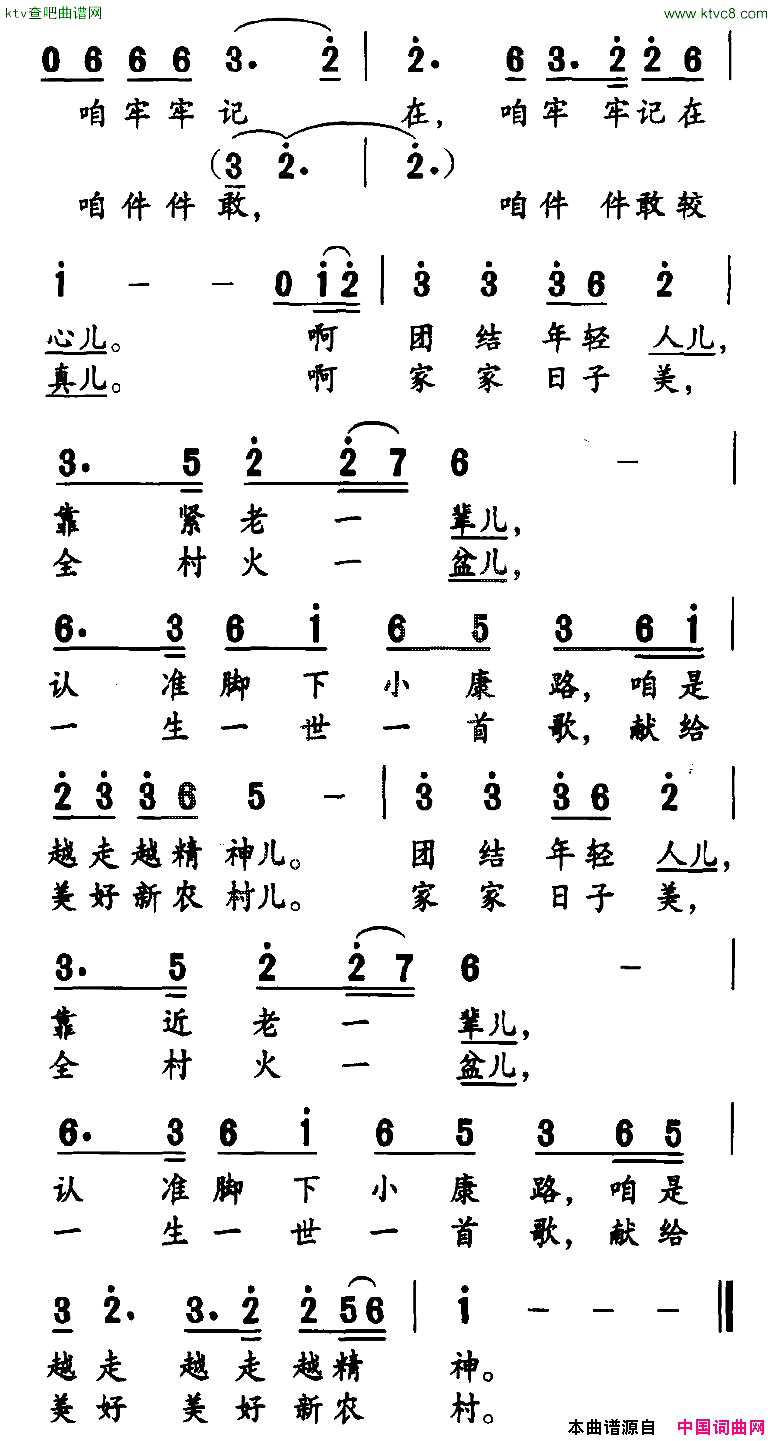 ktv查吧曲谱网 www.ktvc8.com
0 6 6 6 3. 2̇ | 2̇. 6 3. 2̇ 2̇ 6 |
咱牢牢记 在, 咱牢 牢记在
(3 2̇. | 2̇.)
咱件件敢, 咱件 件敢较
1̇ - - 0 1̇ 2̇ | 3̇ 3̇ 3̇ 6 2̇ |
心儿。 啊 团 结 年轻 人儿,
真儿。 啊 家 家 日子 美,
3. 5 2̇ 2̇ 7 6 - |
靠 紧老一 辈儿,
全 村火一 盆儿,
6. 3 6 1̇ 6 5 3 6 1̇ |
认 准脚下小康路,咱是
一 生一世一首歌,献给
2̇ 3̇ 3̇ 6 5 - | 3̇ 3̇ 3̇ 6 2̇ |
越走越精神儿。 团 结 年轻 人儿,
美好新农村儿。 家 家 日子 美,
3. 5 2̇ 2̇ 7 6 - |
靠 近 老一 辈儿,
全 村 火一 盆儿,
6. 3 6 1̇ 6 5 3 6 5 |
认 准脚下小康路,咱是
一 生一世一首歌,献给
3 2̇. 3. 2̇ 2̇ 5 6 | 1̇ - - ‖
越走 越走越精 神。
美好 美好新农 村。
本曲谱源自 中国词曲网